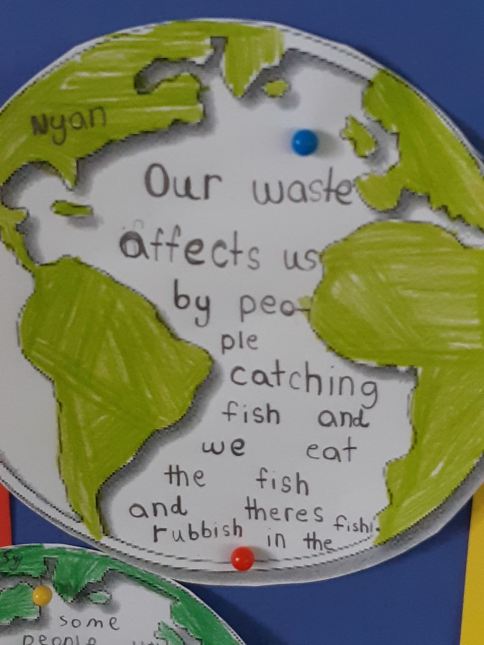 Nyan
Our waste
affects us
by peo-
ple
catching
fish and
we eat
the fish
and theres
rubbish in the fish.
some
people